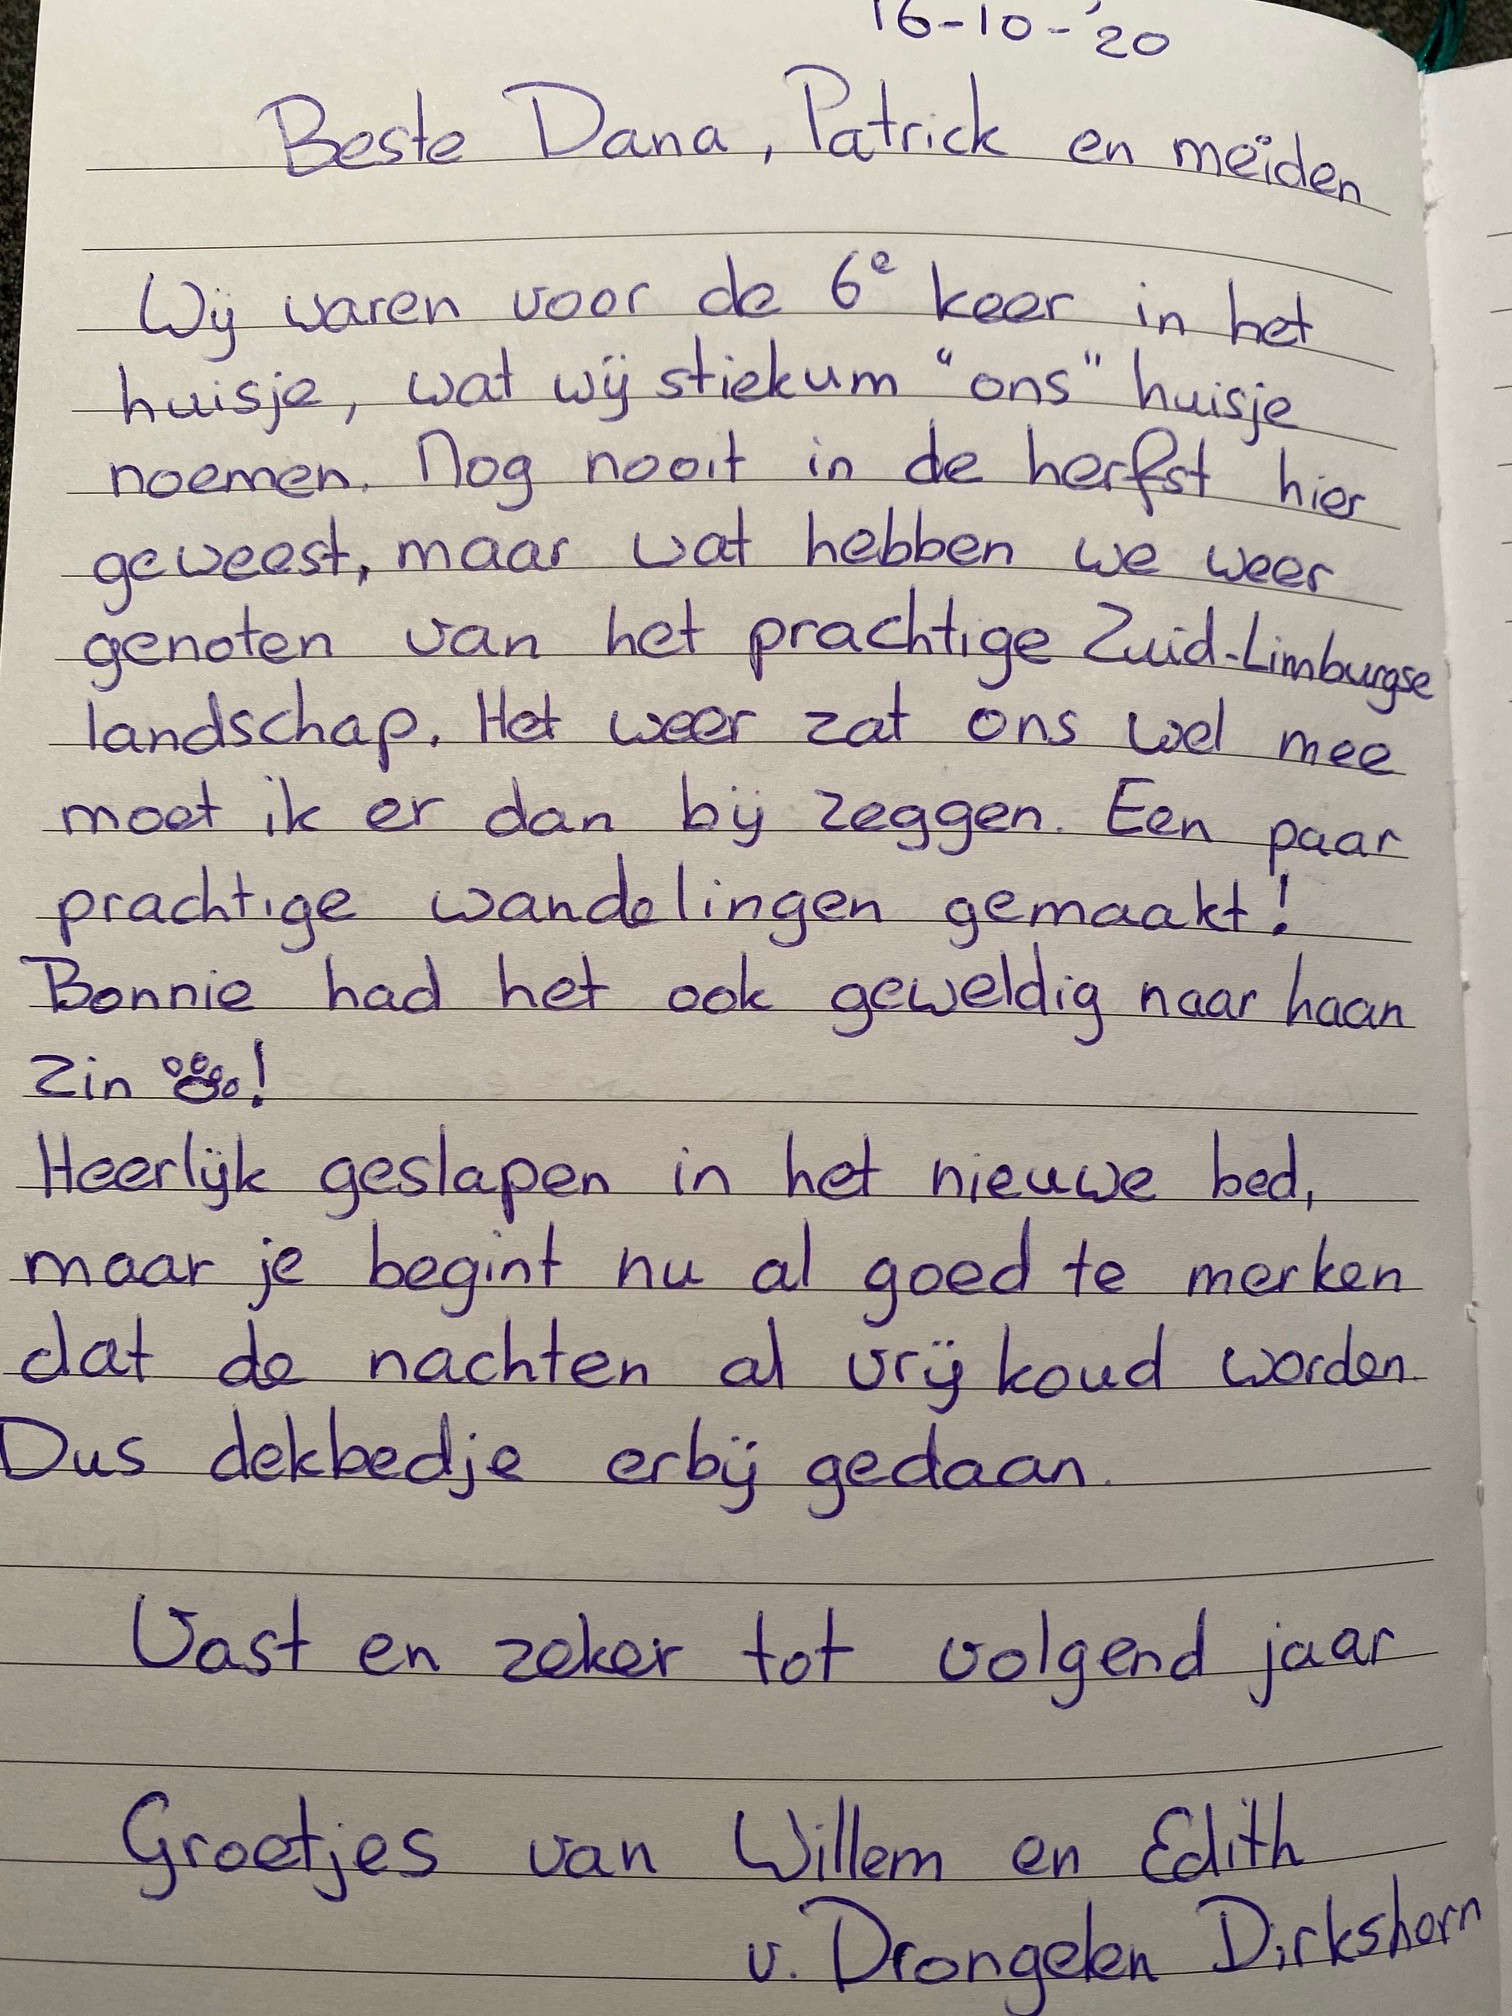 16-10-'20
Beste Dana, Patrick en meiden
Wij waren voor de 6e keer in het
huisje, wat wij stiekum "ons" huisje
noemen. Nog nooit in de herfst hier
geweest, maar wat hebben we weer
genoten van het prachtige Zuid-Limburgse
landschap. Het weer zat ons wel mee
moet ik er dan bij zeggen. Een paar
prachtige wandelingen gemaakt!
Bonnie had het ook geweldig naar haan
zin 🐾!
Heerlijk geslapen in het nieuwe bed,
maar je begint nu al goed te merken
dat de nachten al vrij koud worden.
Dus dekbedje erbij gedaan.
Vast en zeker tot volgend jaar
Groetjes van Willem en Edith
v. Drongelen Dirkshorn